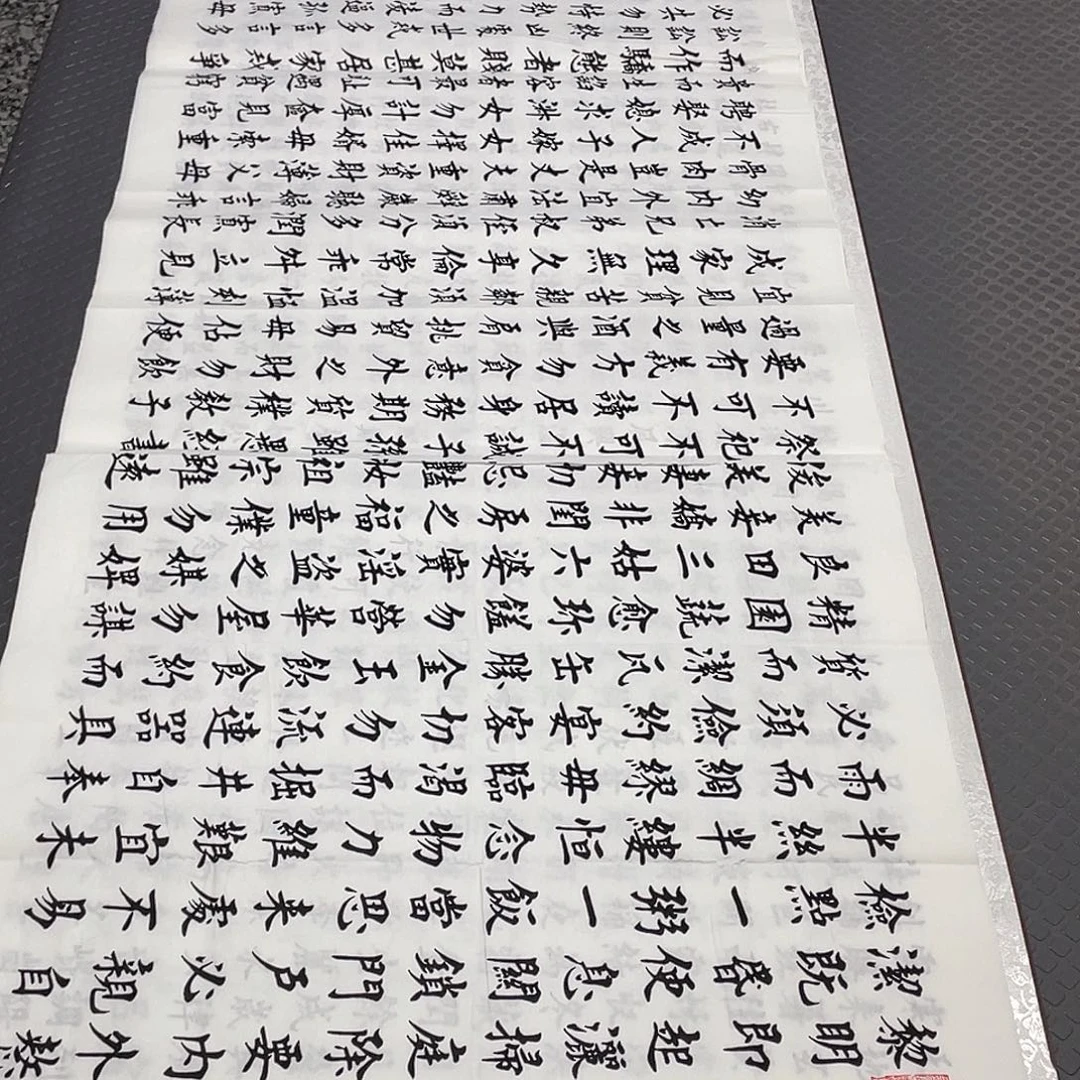 黎明即起灑掃庭除要內外整
潔既昏便息關鎖門戶必親自
檢點一粥一飯當思來處不易
半絲半縷恒念物力維艱宜未
雨而綢繆毋臨渴而掘井自奉
必須儉約宴客切勿流連器具
質而潔瓦缶勝金玉飲食約而
精園蔬愈珍饈勿營華屋勿謀
良田三姑六婆實淫盜之媒婢
美妾嬌非閨房之福童僕勿用
俊美妻妾切忌艷妝祖宗雖遠
祭祀不可不誠子孫雖愚經書
不可不讀居身務期質樸教子
要有義方勿貪意外之財勿飲
過量之酒與肩挑貿易毋佔便
宜見貧苦親鄰須加溫恤刻薄
成家理無久享倫常乖舛立見
消亡兄弟叔侄須分多潤寡長
幼內外宜法肅辭嚴聽婦言乖
骨肉豈是丈夫重資財薄父母
不成人子嫁女擇佳婿毋索重
聘娶媳求淑女勿計厚奩見富
貴而生諂容者最可恥遇貧窮
而作驕態者賤莫甚居家戒爭
訟訟則終凶處世戒多言言多
必失勿恃勢力而凌逼孤寡毋